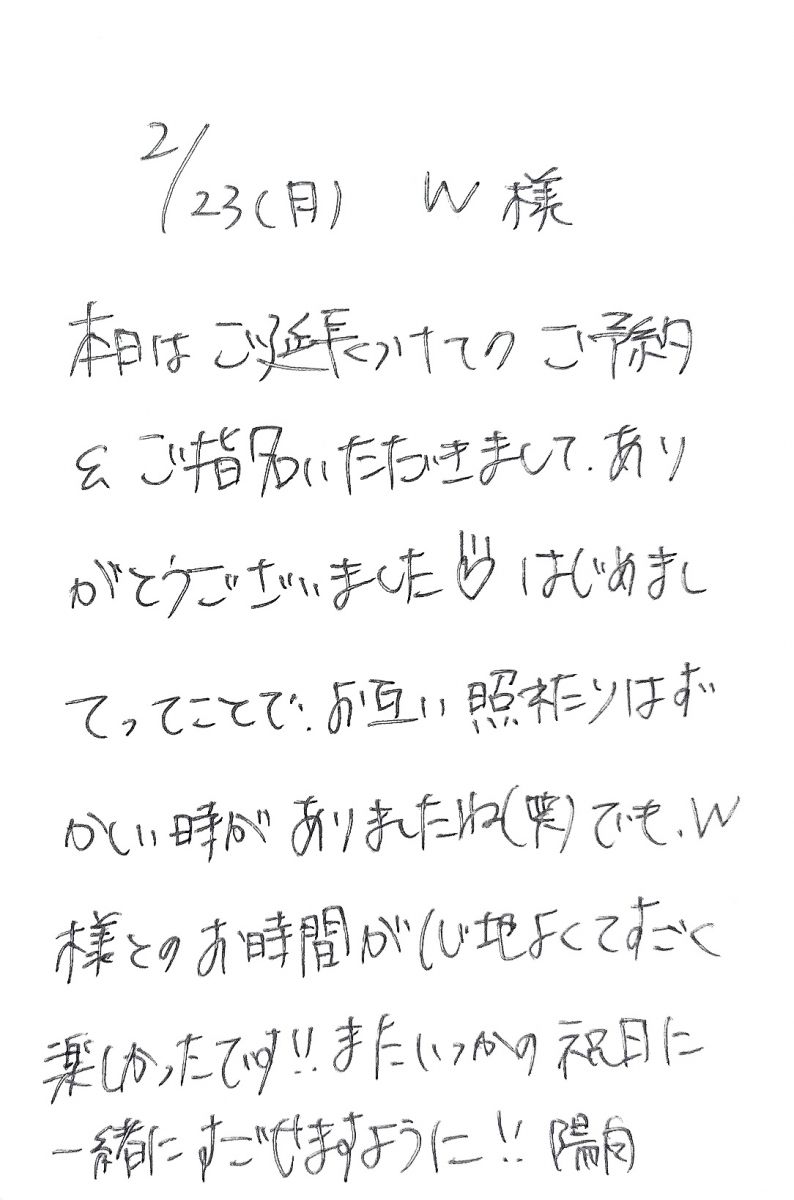 2/23(月) W様
本日はご延長つけてのご予約
& ご指名いただきまして、あり
がとうございました はじめまし
てってことで、お互い照れたりはず
かしい時がありましたね(笑)でも、W
様とのお時間が心地よくてすごく
楽しかったです!! またいつかの祝日に
一緒にすごせますように!! 陽向